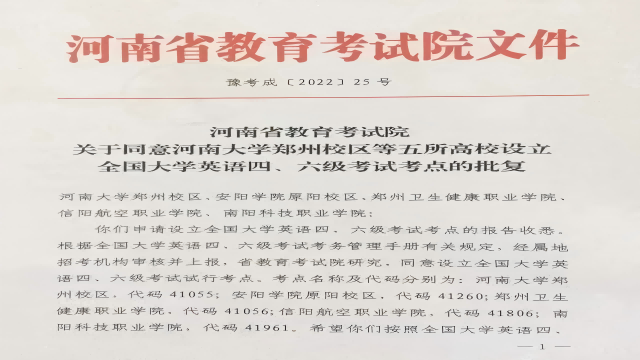 河南省教育考试院文件
豫考成〔2022〕25号
河南省教育考试院
关于同意河南大学郑州校区等五所高校设立
全国大学英语四、六级考试考点的批复
河南大学郑州校区、安阳学院原阳校区、郑州卫生健康职业学院、
信阳航空职业学院、南阳科技职业学院:
你们申请设立全国大学英语四、六级考试考点的报告收悉。
根据全国大学英语四、六级考试考务管理手册有关规定，经属地
招考机构审核并上报，省教育考试院研究，同意设立全国大学英
语四、六级考试试行考点。考点名称及代码分别为：河南大学郑
州校区，代码 41055；安阳学院原阳校区，代码 41260；郑州卫生
健康职业学院，代码 41056；信阳航空职业学院，代码 41806；南
阳科技职业学院，代码 41961。希望你们按照全国大学英语四、
— 1 —